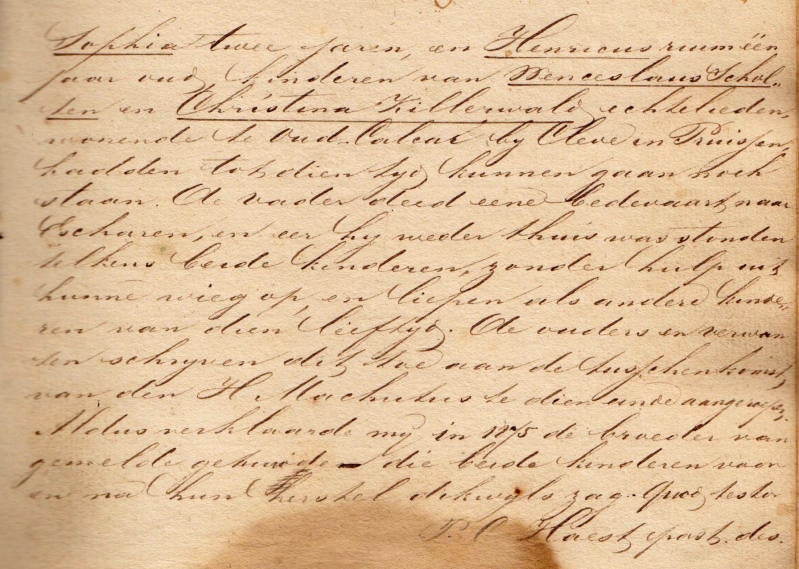 Sophia twee jaren, en Henricus ruim één
jaar oud, kinderen van Wenceslaus Schol-
ten en Christina Killerwald echtelieden,
wonende te Oud-Calcar by Cleve in Pruissen,
hadden tot dien tyd kunnen gaan noch
staan. De vader deed eene bedevaart naar
Escharen, en eer hy weder thuis was stonden
telkens beide kinderen, zonder hulp uit
hunne wieg op, en liepen als andere kinde-
ren van dien leeftyd. De ouders en verwan
ten schryven dit toe aan de tusschenkomst,
van den H. Machutus te dien einde aangeroepen.
Aldus verklaarde my in 1875 de broeder van
gemelde gehuwde – die beide kinderen voor
en na hun herstel dikwyls zag. Quod testor
P. C. Haest, past. des.